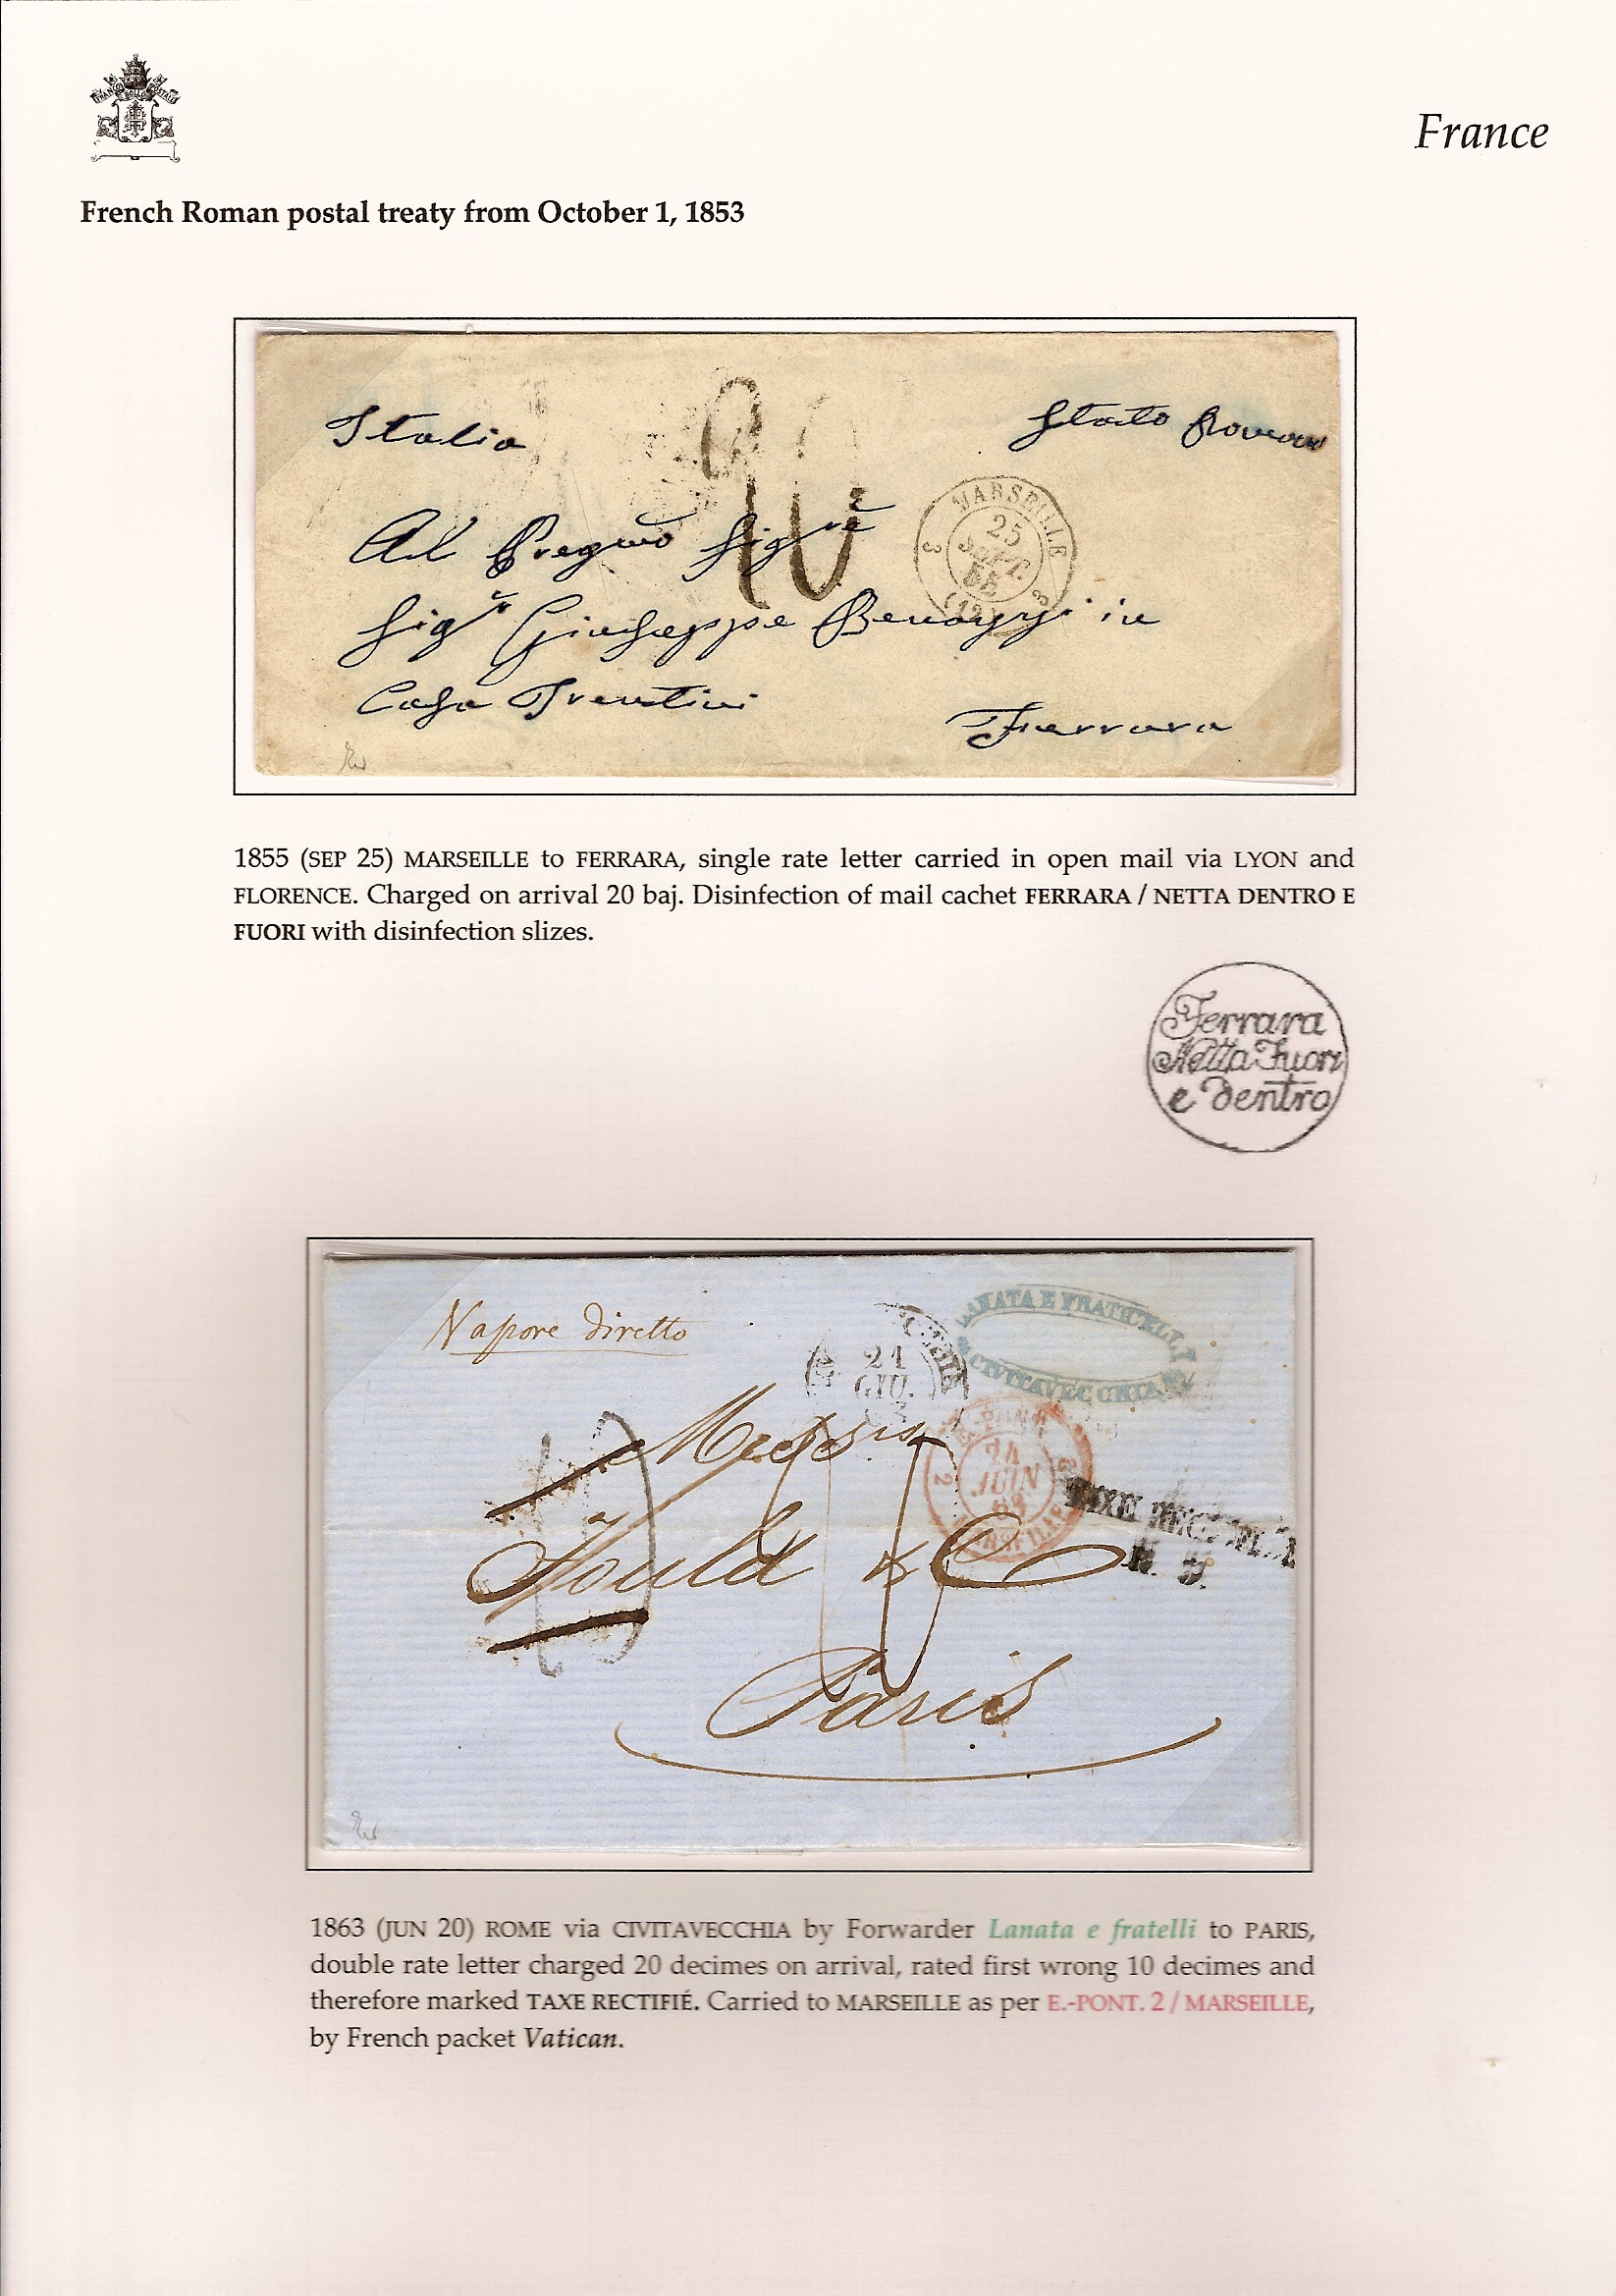 FRANCO BOLLO POSTALE
France
French Roman postal treaty from October 1, 1853
Italia
Stato Romano
20
MARSEILLE
25
SEPT.
55
(12)
3 3
Al Pregmo Sigre
Sigr Giuseppe Benayyi in
Casa Trentini
Ferrara
1855 (SEP 25) MARSEILLE to FERRARA, single rate letter carried in open mail via LYON and
FLORENCE. Charged on arrival 20 baj. Disinfection of mail cachet FERRARA / NETTA DENTRO E
FUORI with disinfection slizes.
Ferrara
Netta Fuori
e Dentro
Vapore diretto
LANATA E FRATICELLI
CIVITAVECCHIA
21
GIU.
63
Messrs
E.-PONT.
2
JUIN
63
MARSEILLE
TAXE RECTIFIÉE
Fould & C
Paris
1863 (JUN 20) ROME via CIVITAVECCHIA by Forwarder Lanata e fratelli to PARIS,
double rate letter charged 20 decimes on arrival, rated first wrong 10 decimes and
therefore marked TAXE RECTIFIÉ. Carried to MARSEILLE as per E.-PONT. 2 / MARSEILLE,
by French packet Vatican.